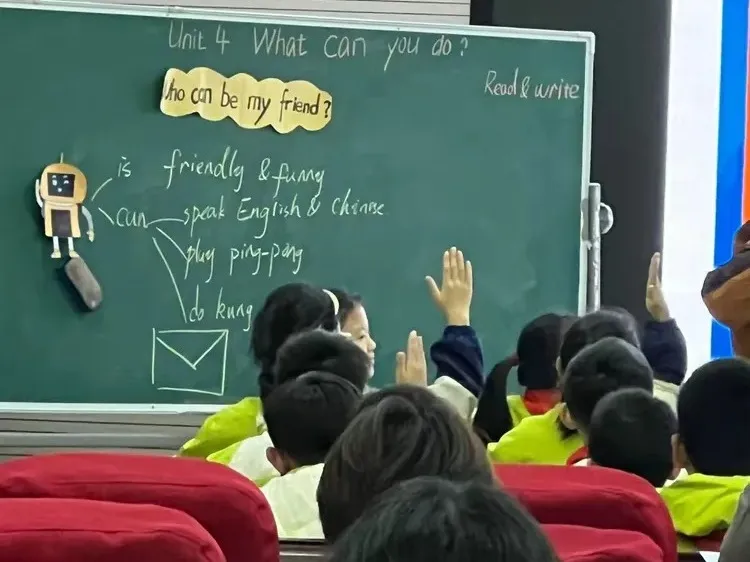 Unit 4 What can you do?
Who can be my friend?
Read & write
is friendly & funny
can speak English & Chinese
play ping-pong
do kung